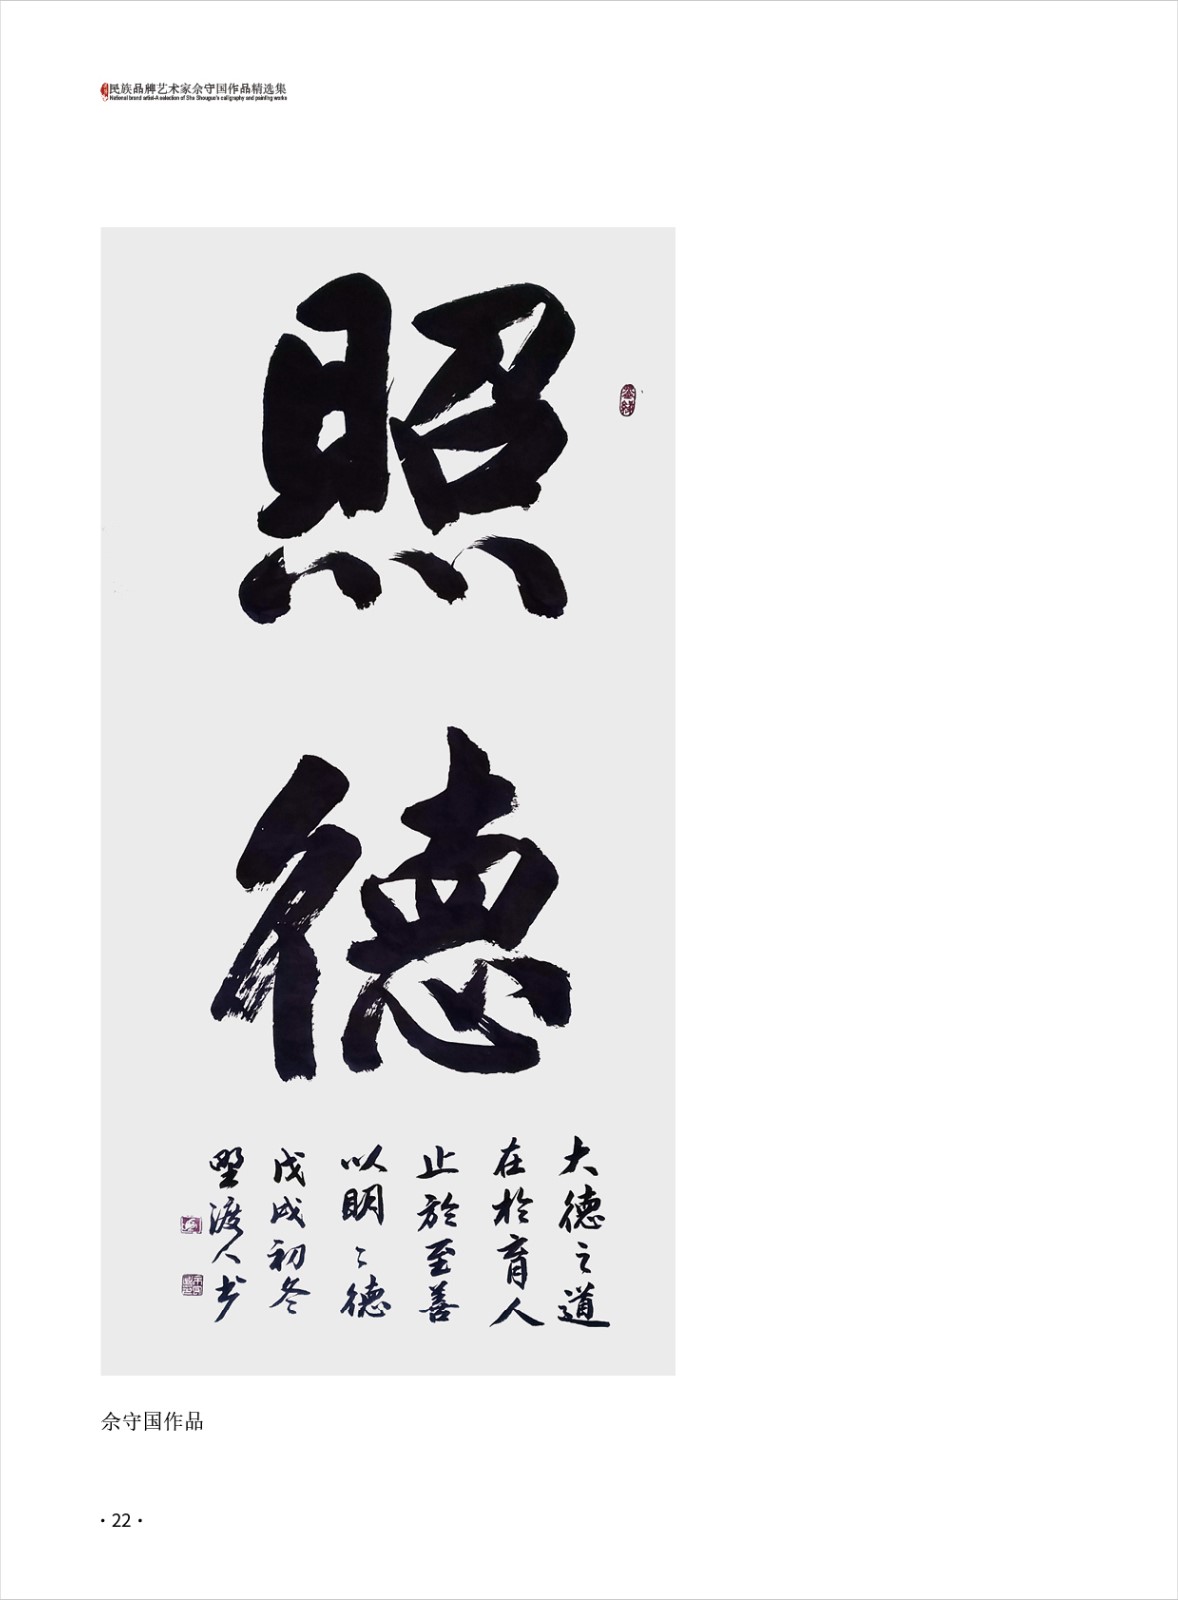 民族品牌艺术家佘守国作品精选集
National brand artist-A selection of She Shouguo's calligraphy and painting works
照德
大德之道
在於育人
止於至善
以明〻德
戊戌初冬
野渡人书
佘守国作品
·22·